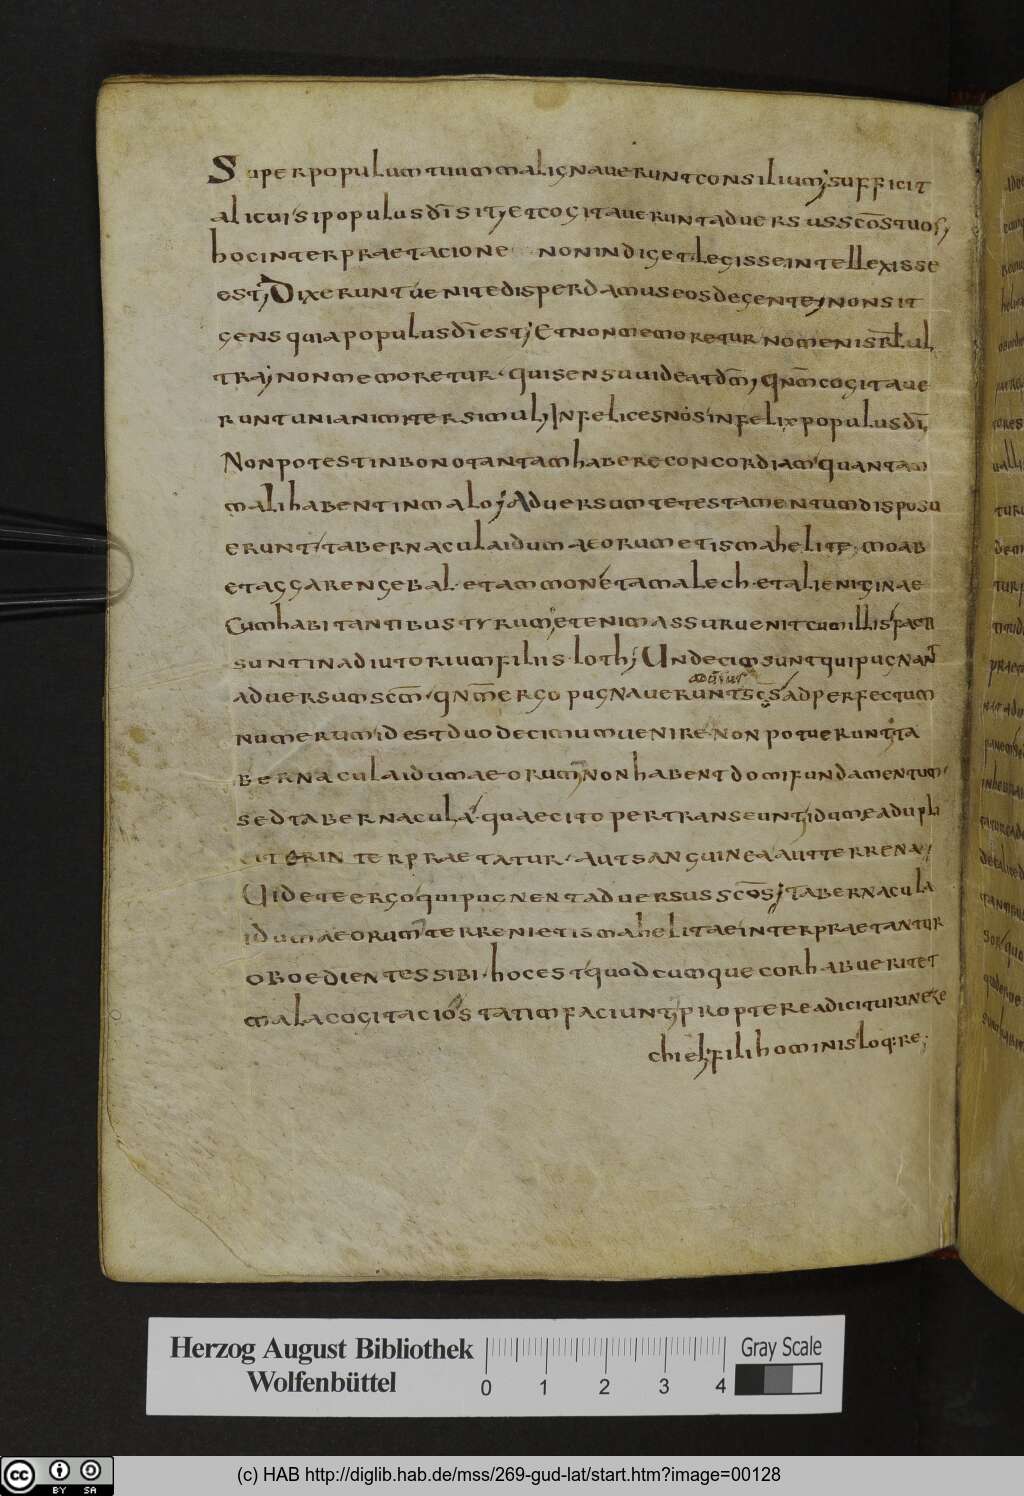 Super populum tuum malignaverunt consilium; sufficit
alicui si populus dī sit; et cogitaverunt adversus scōs tuos;
hoc interpraetacione non indiget. legisse intellexisse
est; Dixerunt venite disperdamus eos de gente; non sit
gens quia populus dī est; Et non memoretur nomen isrl ul
tra; non memoretur. qui sensu videat dm̄; qnm̄ cogitave
runt unianimiter simul; Infelices nos infelix populus dī,
Non potest in bono tantam habere concordiam quantam
mali habent in malo; Adversum te testamentum disposu
erunt tabernacula idumaeorum et ismahelite; moab
et aggaren gebal. et ammon et amalech. et alieniginae
Cum habitantibus tyrum; etenim assur uenit cum illis facti
sunt in adiutorium filiis loth; Undecim sunt qui pugnant
adversum scm̄. qnm̄ ergo pugnaverunt scs ad perfectum
numerum id est duodecimum venire non potuerunt; ta
bernacula idumaeorum non habent domi fundamentum
sed tabernacula. quae cito pertranseunt; idumea dupli
citer interpraetatur. aut sanguinea aut terrena;
Videte ergo qui pugnent adversus scōs; tabernacula
idumaeorum terreni et ismahelitae interpraetantur
oboedientes sibi. hoc est quodcumque cor habuerit et
mala cogitacio statim faciunt; propterea dicitur in eze
chiel; fili hominis loq:re;
Herzog August Bibliothek
Wolfenbüttel
0 1 2 3 4
Gray Scale
cc BY SA
(c) HAB http://diglib.hab.de/mss/269-gud-lat/start.htm?image=00128